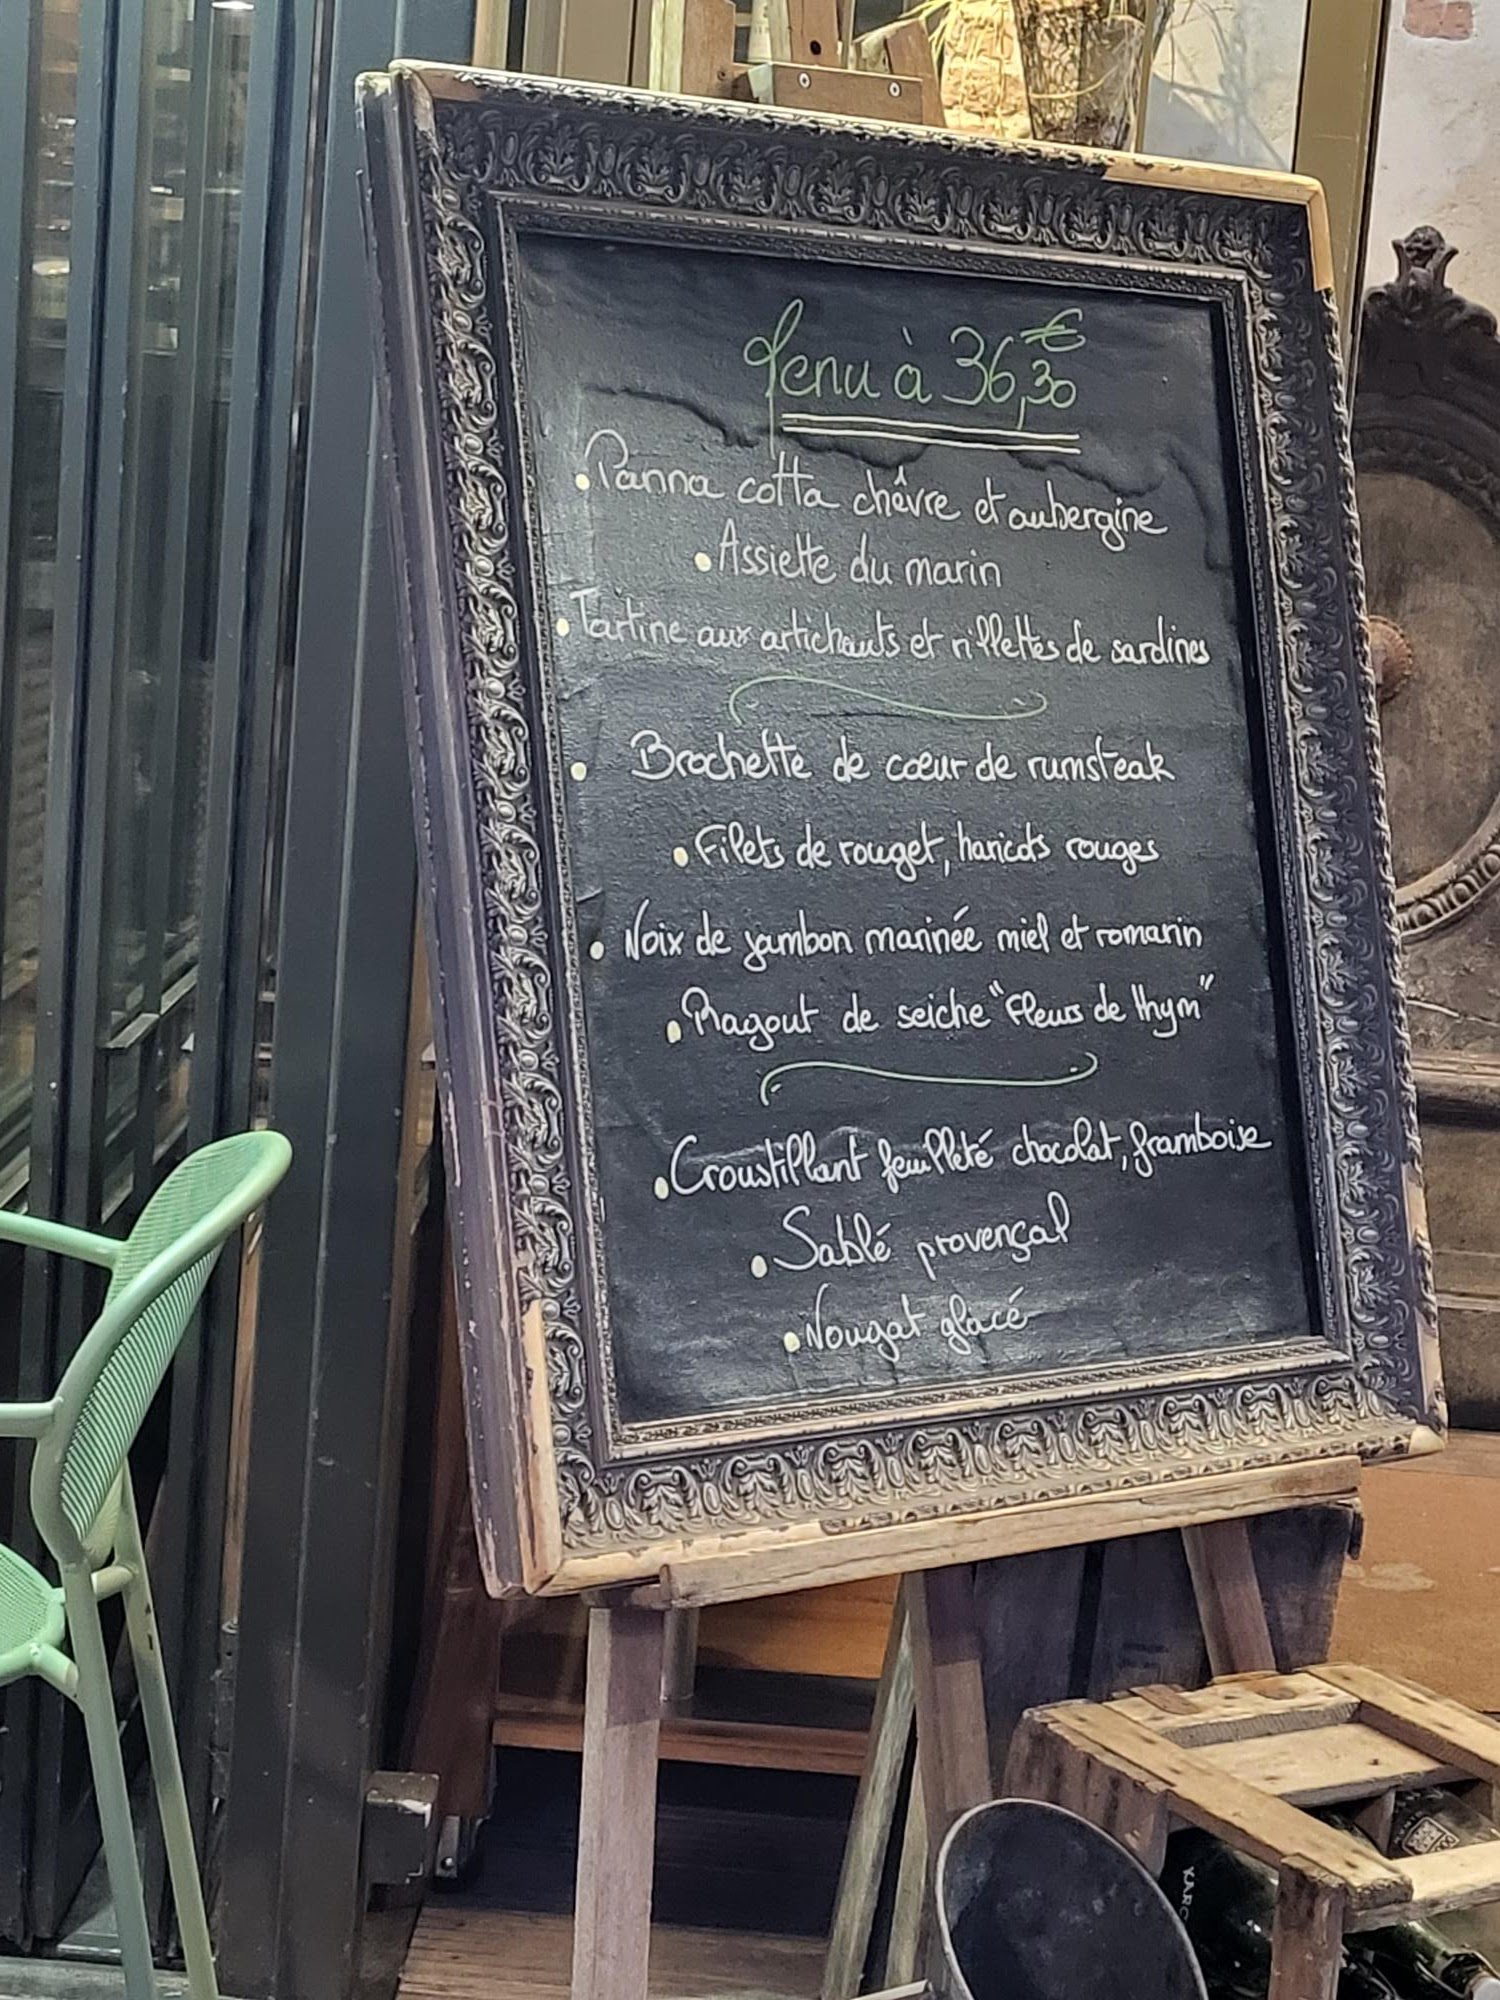 Menu à 36,30 €
• Panna cotta chêvre et aubergine
• Assiette du marin
• Tartine aux artichauts et rillettes de sardines
• Brochette de cœur de rumsteak
• Filets de rouget, haricots rouges
• Noix de jambon marinée miel et romarin
• Ragout de seiche "Fleurs de thym"
• Croustillant feuilleté chocolat, framboise
• Sablé provençal
• Nougat glacé